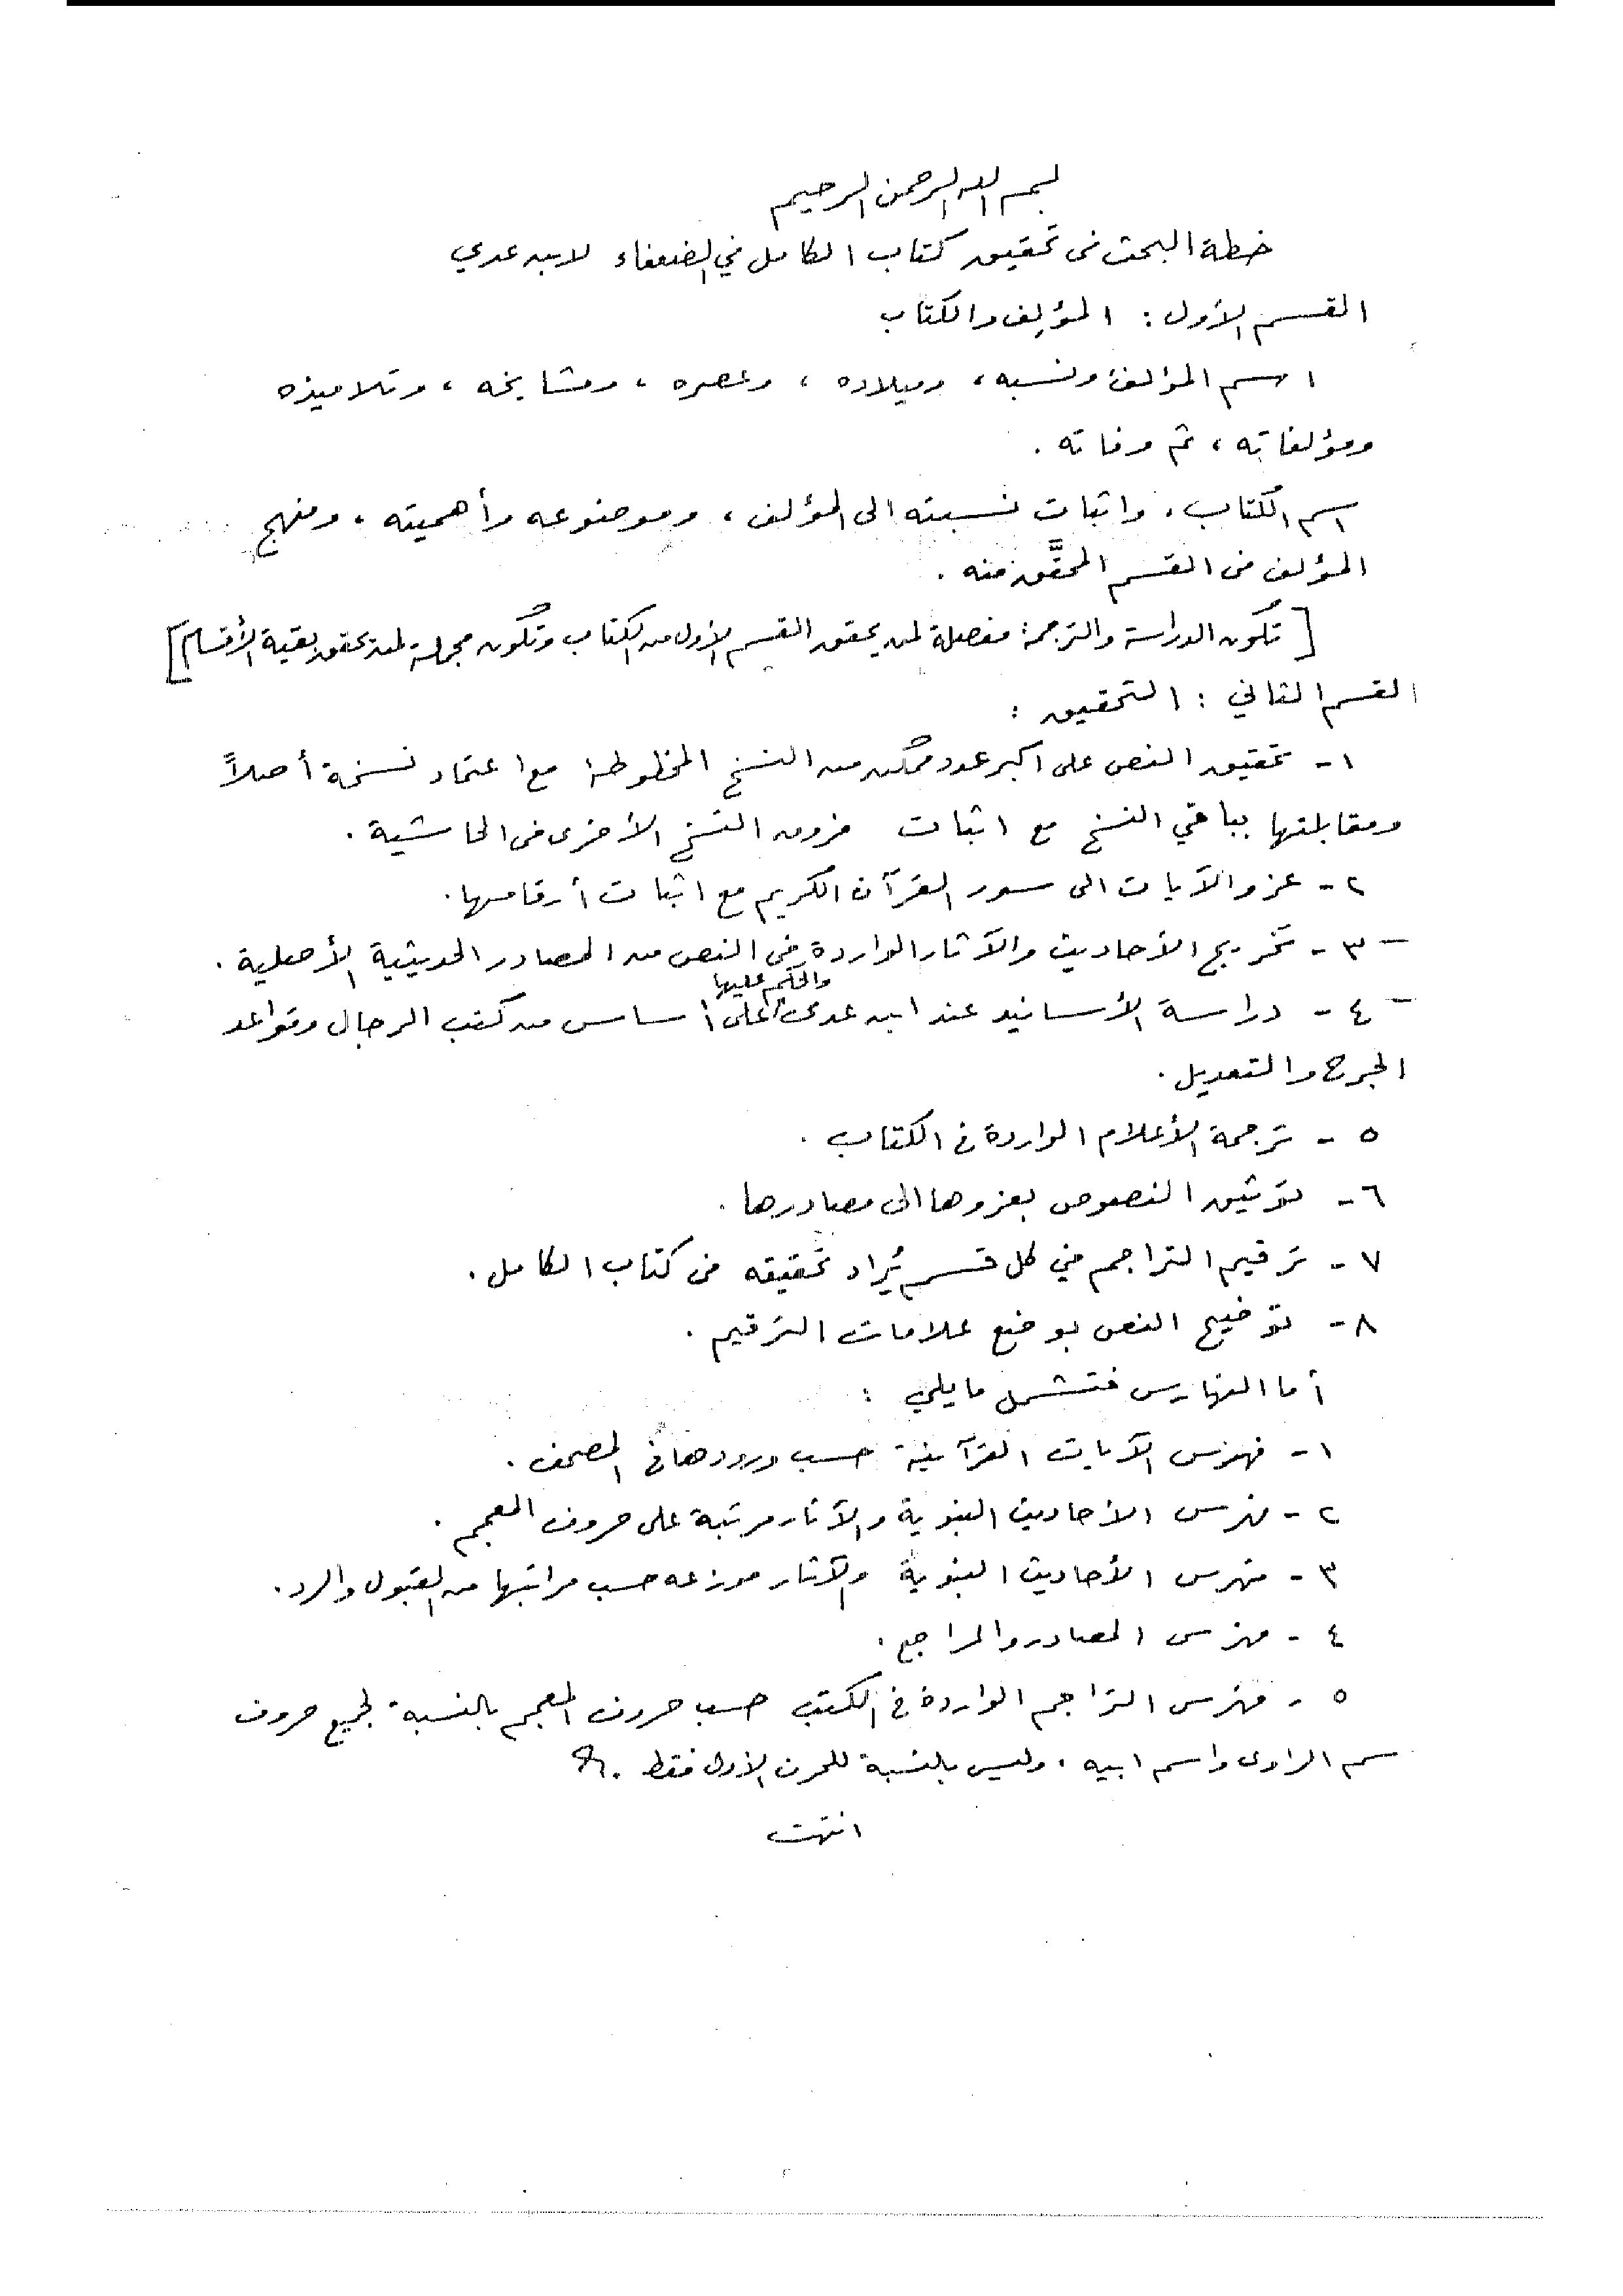 بسم الله الرحمن الرحيم
خطة البحث في تحقيق كتاب الكامل في الضعفاء لابن عدي
القسم الأول : المؤلف والكتاب
اسم المؤلف ونسبه ، وميلاده ، وعصره ، ومشايخه ، وتلاميذه
ومؤلفاته ، ثم وفاته .
اسم الكتاب ، واثبات نسبته الى المؤلف ، وموضوعه وأهميته ، ومنهج
المؤلف في القسم المحقَّق منه .
[ تكون الدراسة والترجمة مفصلة لمن يحقق القسم الأول من الكتاب وتكون مجملة لمن يحقق بقية الأقسام ]
القسم الثاني : التحقيق :
١ - تحقيق النص على اكبر عدد ممكن من النسخ المخطوطة مع اعتماد نسخة أصلاً
ومقابلتها بباقي النسخ مع اثبات فروق النسخ الأخرى في الحاشية .
٢ - عزو الآيات الى سور القرآن الكريم مع اثبات أرقامها .
٣ - تخريج الأحاديث والآثار الواردة في النص من المصادر الحديثية الأصلية .
٤ - دراسة الأسانيد عند ابن عدى والحكم عليها على أساس من كتب الرجال وقواعد
الجرح والتعديل .
٥ - ترجمة الأعلام الواردة في الكتاب .
٦ - توثيق النصوص بعزوها الى مصادرها .
٧ - ترقيم التراجم في كل قسم يُراد تحقيقه من كتاب الكامل .
٨ - توضيح النص بوضع علامات الترقيم .
أما الفهارس فتشمل مايلي :
١ - فهرس الآيات القرآنية حسب ورودها في المصحف .
٢ - فهرس الأحاديث النبوية والآثار مرتبة على حروف المعجم .
٣ - فهرس الأحاديث النبوية والآثار موزعه حسب مراتبها من القبول والرد .
٤ - فهرس المصادر والمراجع .
٥ - فهرس التراجم الواردة في الكتب حسب حروف المعجم بالنسبة لجميع حروف
سم الراوى واسم ابيه ، وليس بالنسبة للحرف الأول فقط .
انتهت